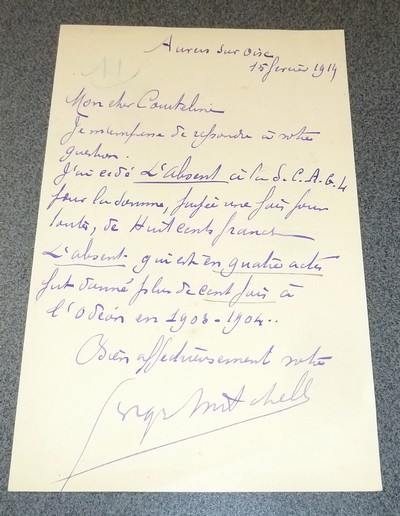 Auvers sur Oise
15 février 1914
11
Mon cher Courteline
Je m'empresse de repondre à votre
question.
J'ai cédé L'Absent à la S.C.A.G.L
pour la somme, payée une fois pour
toutes, de Huit cents francs
L'absent qui est en quatre actes
fut donné plus de cent fois à
l'Odéon en 1903-1904..
Bien affectueusement votre
Georges Mitchell